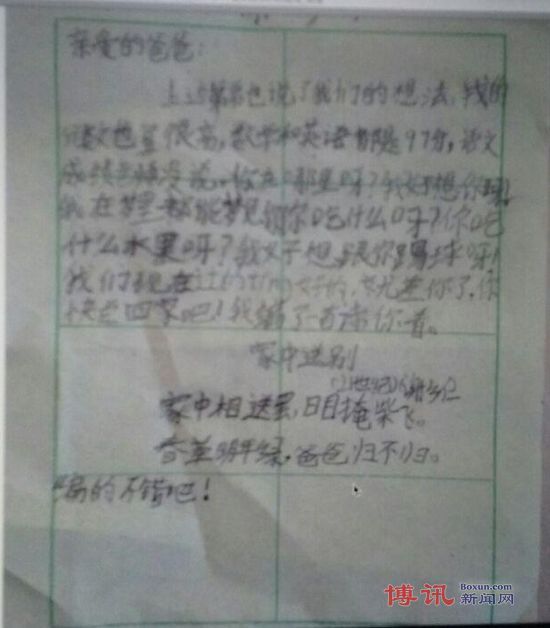 亲爱的爸爸:
上边弟弟也说了我们的想法,我的
分数也是很高,数学和英语都是97分,语文
成绩还没说。你在哪里呀?我好想你呀!
我在梦里都能梦见你,你吃什么呀?你吃
什么水果呀?我又子想跟你踢球呀!
我们现在过的好,就差你了,你
快点回家吧!我编了一首诗你看。
家中送别
(21世纪)
家中相送罢,日目掩柴飞。
春草明年绿,爸爸归不归。
编的不错吧!
博讯 Boxun.com 新闻网